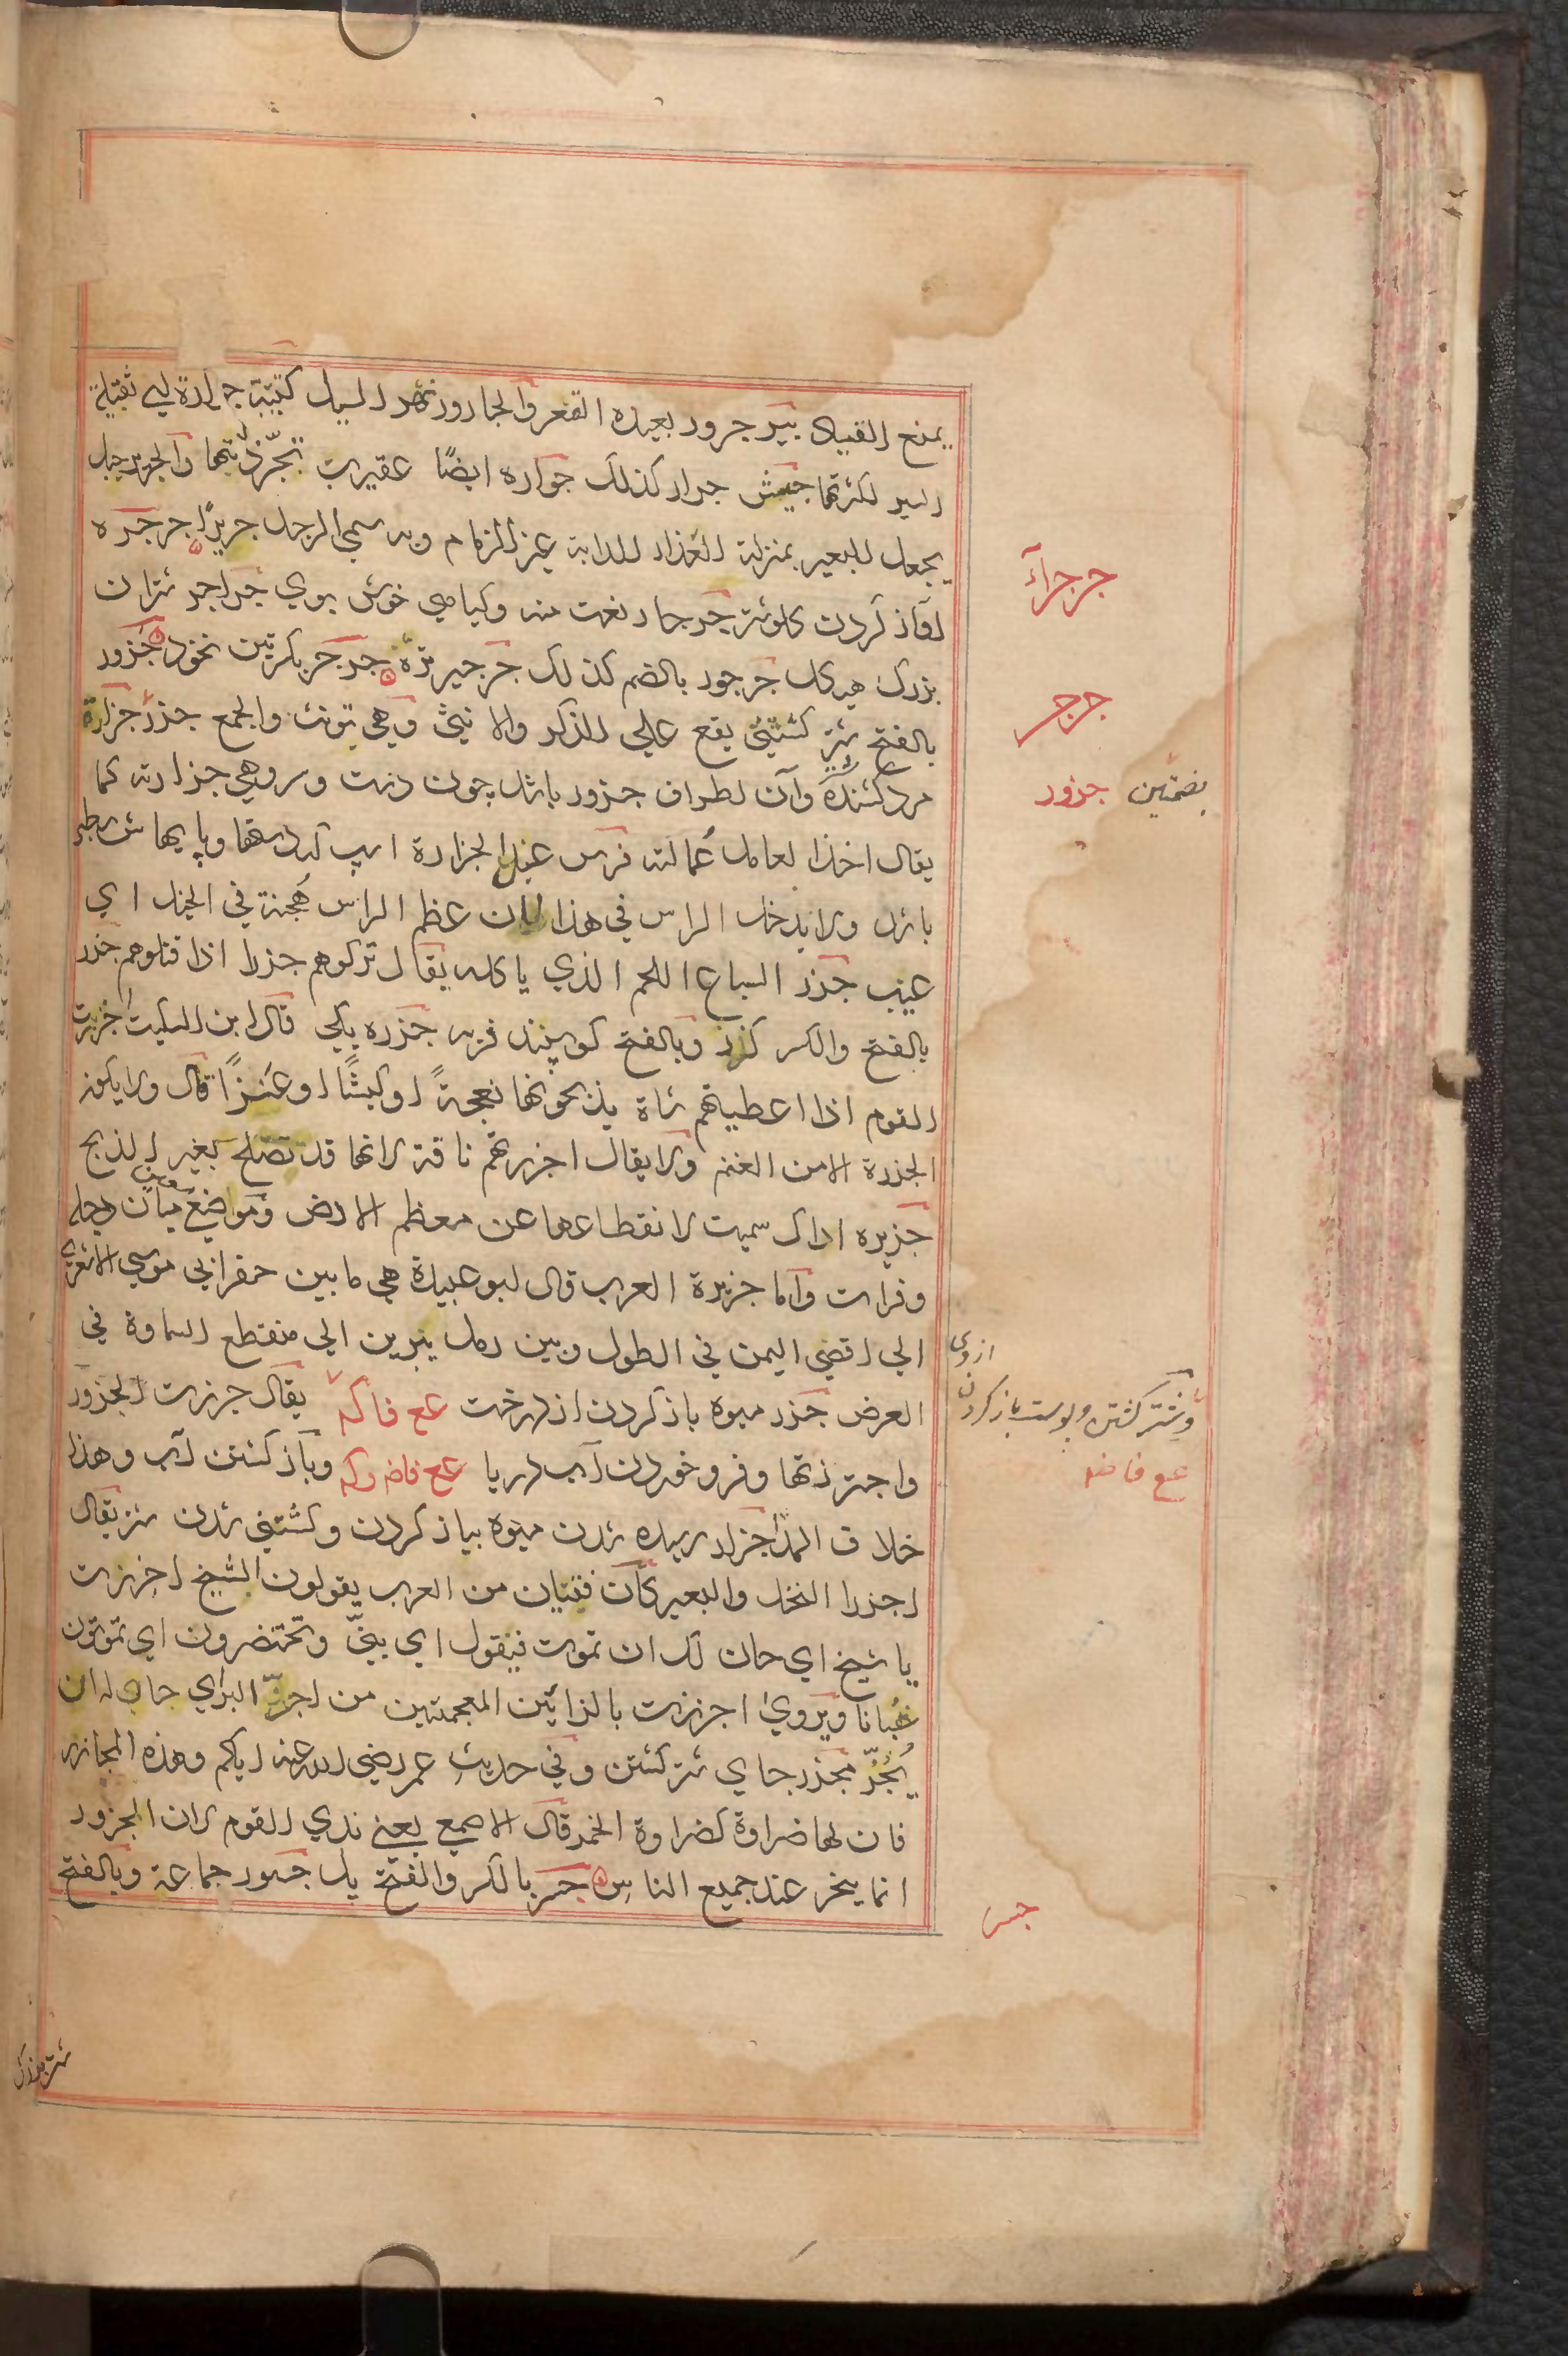 يمنع القياد بير جرور بعيدة القعر والجارور نهر السيل كتيبة جرارة اي ثقيلة
السير لكثرتها جيش جرار كذلك جراره ايضًا عقيربت تجرّ ذنبها والجرير حبل
يجعل للبعير بمنزلة العذار للدابة غير الزمام وبه سمي الرجل جريرًا جرجره
اواز كردن كلوشتر جرجار نعت منه وكياهي خوش بوي جراجر شتران
بزرك هيكل جرجور بالضم كذلك جرجير تره جرجر بكسرتين نخود جزور
بالفتح شتر كشتني يقع علي الذكر والانيث وهي تونث والجمع جزر جزارة
مرد كشنده وآن اطراف جزور باشد چون دست وسر وهي جزارته كما
يقال اخذ العامل عُمالته فرس عبل الجزارة اسپ كه دستها وپايهاش سطبر
باشد ولا يدخل الراس في هذا لان عظم الراس هُجنة في الخيل اي
عيب جزر السباع اللحم الذي ياكله يقال تركوهم جزرا اذا قتلوهم جزر
بالفتح والكسر كزر وبالفتح كوسپند فربه جزره يكي قال ابن السكيت اجزرت
القوم اذا اعطيتهم شاة يذبحونها نعجةً او كبشًا او عنزًا قال ولا يكون
الجزرة الا من الغنم ولا يقال اجزرتهم ناقة لانها قد تصلح لغير الذبح
جزيره اداك سميت لانقطاعها عن معظم الارض وموضع ميان دجله
وفرات واما جزيرة العرب قال ابو عبيدة هي ما بين حفر ابي موسي الاشعري
الي اقصي اليمن في الطول وبين رمل يبرين الي منقطع السماوة في
العرض جزر ميوه باز كردن از درخت عع فاكه يقال جزرت الجزور
واجتزرتها وفرو خوردن آب دريا عع فاضه وكه وباز كشتن آب وهذا
خلاف المد اجزار رسيده شدن ميوه بباز كردن وكشتني شدن شتر يقال
اجزر النخل والبعير كان فتيان من العرب يقولون الشيخ اجزرت
يا شيخ اي حان لك ان تموت فيقول اي بنيّ وتحتضرون اي تموتون
شبانا ويروي اجززت بالزائين المعجمتين من اجزّ البر اي حان له ان
يُجزّ مجزر جاي شتر كشتن وفي حديث عمر رضي الله عنه اياكم وهذه المجازر
فان لها ضراوة كضراوة الخمر قال الاصمعي يعني ندي القوم لان الجزور
انما ينحر عند جميع الناس جسر بالكسر والفتح پل جسور جماعة وبالفتح
جرجرآ
جرجر
بضمتين جزور
از وي
وشتر كشتن وپوست باز كردن
عع فاضه
جسر
شتر بزرك